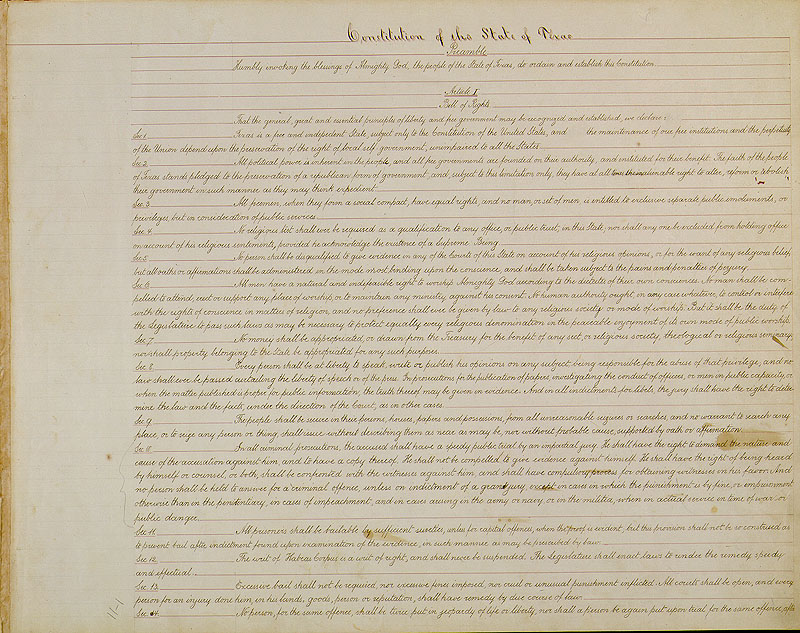 Constitution of the State of Texas
Preamble
Humbly invoking the blessings of Almighty God, the people of the State of Texas, do ordain and establish this Constitution.
Article I
Bill of Rights
That the general, great and essential principles of liberty and free government may be recognized and established, we declare:
Sec 1. Texas is a free and independent State, subject only to the Constitution of the United States, and the maintenance of our free institutions and the perpetuity
of the Union depend upon the preservation of the right of local self government, unimpaired to all the States.
Sec 2. All political power is inherent in the people, and all free governments are founded on their authority, and instituted for their benefit. The faith of the people
of Texas stands pledged to the preservation of a republican form of government, and, subject to this limitation only, they have at all times the inalienable right to alter, reform or abolish
their government in such manner as they may think expedient.
Sec. 3. All freemen, when they form a social compact, have equal rights, and no man, or set of men, is entitled to exclusive separate public emoluments, or
privileges, but in consideration of public services.
Sec 4. No religious test shall ever be required as a qualification to any office, or public trust, in this State; nor shall any one be excluded from holding office
on account of his religious sentiments, provided he acknowledge the existence of a Supreme Being.
Sec 5. No person shall be disqualified to give evidence in any of the Courts of this State on account of his religious opinions, or for the want of any religious belief,
but all oaths or affirmations shall be administered in the mode most binding upon the conscience, and shall be taken subject to the pains and penalties of perjury.
Sec 6. All men have a natural and indefeasible right to worship Almighty God according to the dictates of their own consciences. No man shall be com-
pelled to attend, erect or support any place of worship, or to maintain any ministry against his consent. No human authority ought, in any case whatever, to control or interfere
with the rights of conscience in matters of religion, and no preference shall ever be given by law to any religious society or mode of worship. But it shall be the duty of
the Legislature to pass such laws as may be necessary to protect equally every religious denomination in the peaceable enjoyment of its own mode of public worship.
Sec. 7. No money shall be appropriated, or drawn from the Treasury for the benefit of any sect, or religious society, theological or religious seminary,
nor shall property belonging to the State be appropriated for any such purposes.
Sec. 8. Every person shall be at liberty to speak, write or publish his opinions on any subject, being responsible for the abuse of that privilege, and no
law shall ever be passed curtailing the liberty of speech or of the press. In prosecutions for the publication of papers, investigating the conduct of officers, or men in public capacity, or
when the matter published is proper for public information, the truth thereof may be given in evidence. And in all indictments for libels, the jury shall have the right to deter-
mine the law and the facts, under the direction of the Court, as in other cases.
Sec 9. The people shall be secure in their persons, houses, papers and possessions, from all unreasonable seizures or searches, and no warrant to search any
place, or to seize any person or thing, shall issue without describing them as near as may be, nor without probable cause, supported by oath or affirmation.
Sec. 10. In all criminal prosecutions, the accused shall have a speedy public trial by an impartial jury. He shall have the right to demand the nature and
cause of the accusation against him, and to have a copy thereof. He shall not be compelled to give evidence against himself. He shall have the right of being heard
by himself or counsel, or both, shall be confronted with the witnesses against him, and shall have compulsory process for obtaining witnesses in his favor. And
no person shall be held to answer for a criminal offence, unless on indictment of a grand jury, except in cases in which the punishment is by fine, or imprisonment
otherwise than in the penitentiary, in cases of impeachment, and in cases arising in the army or navy, or in the militia, when in actual service in time of war or
public danger.
Sec 11. All prisoners shall be bailable by sufficient sureties, unless for capital offences, when the proof is evident, but this provision shall not be so construed as
to prevent bail after indictment found upon examination of the evidence, in such manner as may be prescribed by law.
Sec 12. The writ of Habeas Corpus is a writ of right, and shall never be suspended. The Legislature shall enact laws to render the remedy speedy
and effectual.
Sec 13. Excessive bail shall not be required, nor excessive fines imposed, nor cruel or unusual punishment inflicted. All courts shall be open, and every
person for an injury done him, in his lands, goods, person or reputation, shall have remedy by due course of law.
Sec 14. No person, for the same offence, shall be twice put in jeopardy of life or liberty, nor shall a person be again put upon trial for the same offence, after
11-1